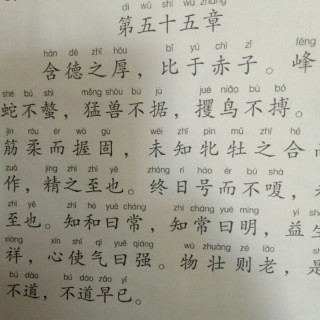 dì wǔ shí wǔ zhāng
第五十五章
hán dé zhī hòu bǐ yú chì zǐ fēng
含德之厚，比于赤子。峰
shé bú shì měng shòu bú jù jué niǎo bù bó
蛇不螫，猛兽不据，攫鸟不搏。
jīn róu ér wò gù wèi zhī pìn mǔ zhī hé
筋柔而握固，未知牝牡之合而
zuō jīng zhī zhì yě zhōng rì háo ér bú shà
作，精之至也。终日号而不嗄，
zhì yě zhī hé yuē cháng zhī cháng yuē míng yì shēng
至也。知和曰常，知常曰明，益生
xiáng xīn shǐ qì yuē qiáng wù zhuàng zé lǎo shì
祥，心使气曰强。物壮则老，是
bú dào bú dào zǎo yǐ
不道，不道早已。